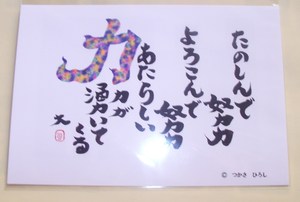 たのしんで
努力
よろこんで
努力
あたらしい
力が
湧いて
くる
力
© つかさ ひろし